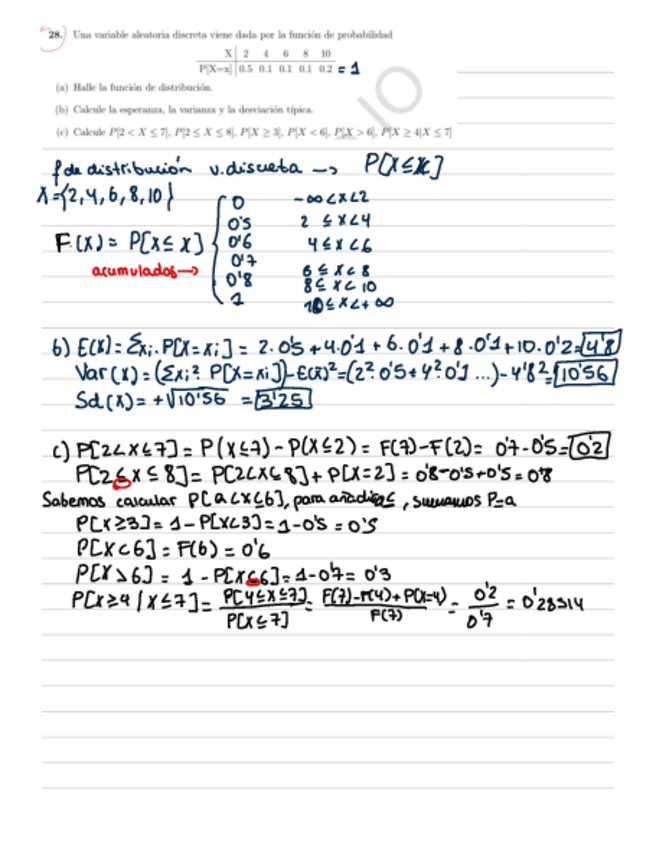 28. Una variable aleatoria discreta viene dada por la función de probabilidad
X | 2 4 6 8 10
P[X=x] | 0.5 0.1 0.1 0.1 0.2 = 1
(a) Halle la función de distribución.
(b) Calcule la esperanza, la varianza y la desviación típica.
(c) Calcule P[2 < X ≤ 7], P[2 ≤ X ≤ 8], P[X ≥ 3], P[X < 6], P[X > 6], P[X ≥ 4|X ≤ 7]
f de distribución v. discreta → P[X ≤ x]
X = {2, 4, 6, 8, 10}
0 -∞ < x < 2
0'5 2 ≤ x < 4
F(X) = P[X ≤ x] 0'6 4 ≤ x < 6
0'7 6 ≤ x < 8
acumulados → 0'8 8 ≤ x < 10
1 10 ≤ x < +∞
b) E(X) = Σxi · P[X = xi] = 2·0'5 + 4·0'1 + 6·0'1 + 8·0'1 + 10·0'2 = 4'8
Var(X) = (Σxi² P[X = xi]) - E(X)² = (2²·0'5 + 4²·0'1 ...) - 4'8² = 10'56
Sd(X) = +√10'56 = 3'25
c) P[2 < X ≤ 7] = P(X ≤ 7) - P(X ≤ 2) = F(7) - F(2) = 0'7 - 0'5 = 0'2
P[2 ≤ X ≤ 8] = P[2 < X ≤ 8] + P[X = 2] = 0'8 - 0'5 + 0'5 = 0'8
Sabemos calcular P[a < X ≤ b], para añadir ≤, sumamos P=a
P[X ≥ 3] = 1 - P[X < 3] = 1 - 0'5 = 0'5
P[X < 6] = F(6) = 0'6
P[X > 6] = 1 - P[X ≤ 6] = 1 - 0'7 = 0'3
P[X ≥ 4 | X ≤ 7] = P[4 ≤ X ≤ 7] / P[X ≤ 7] = F(7) - F(4) + P(X=4) / F(7) = 0'2 / 0'7 = 0'28514